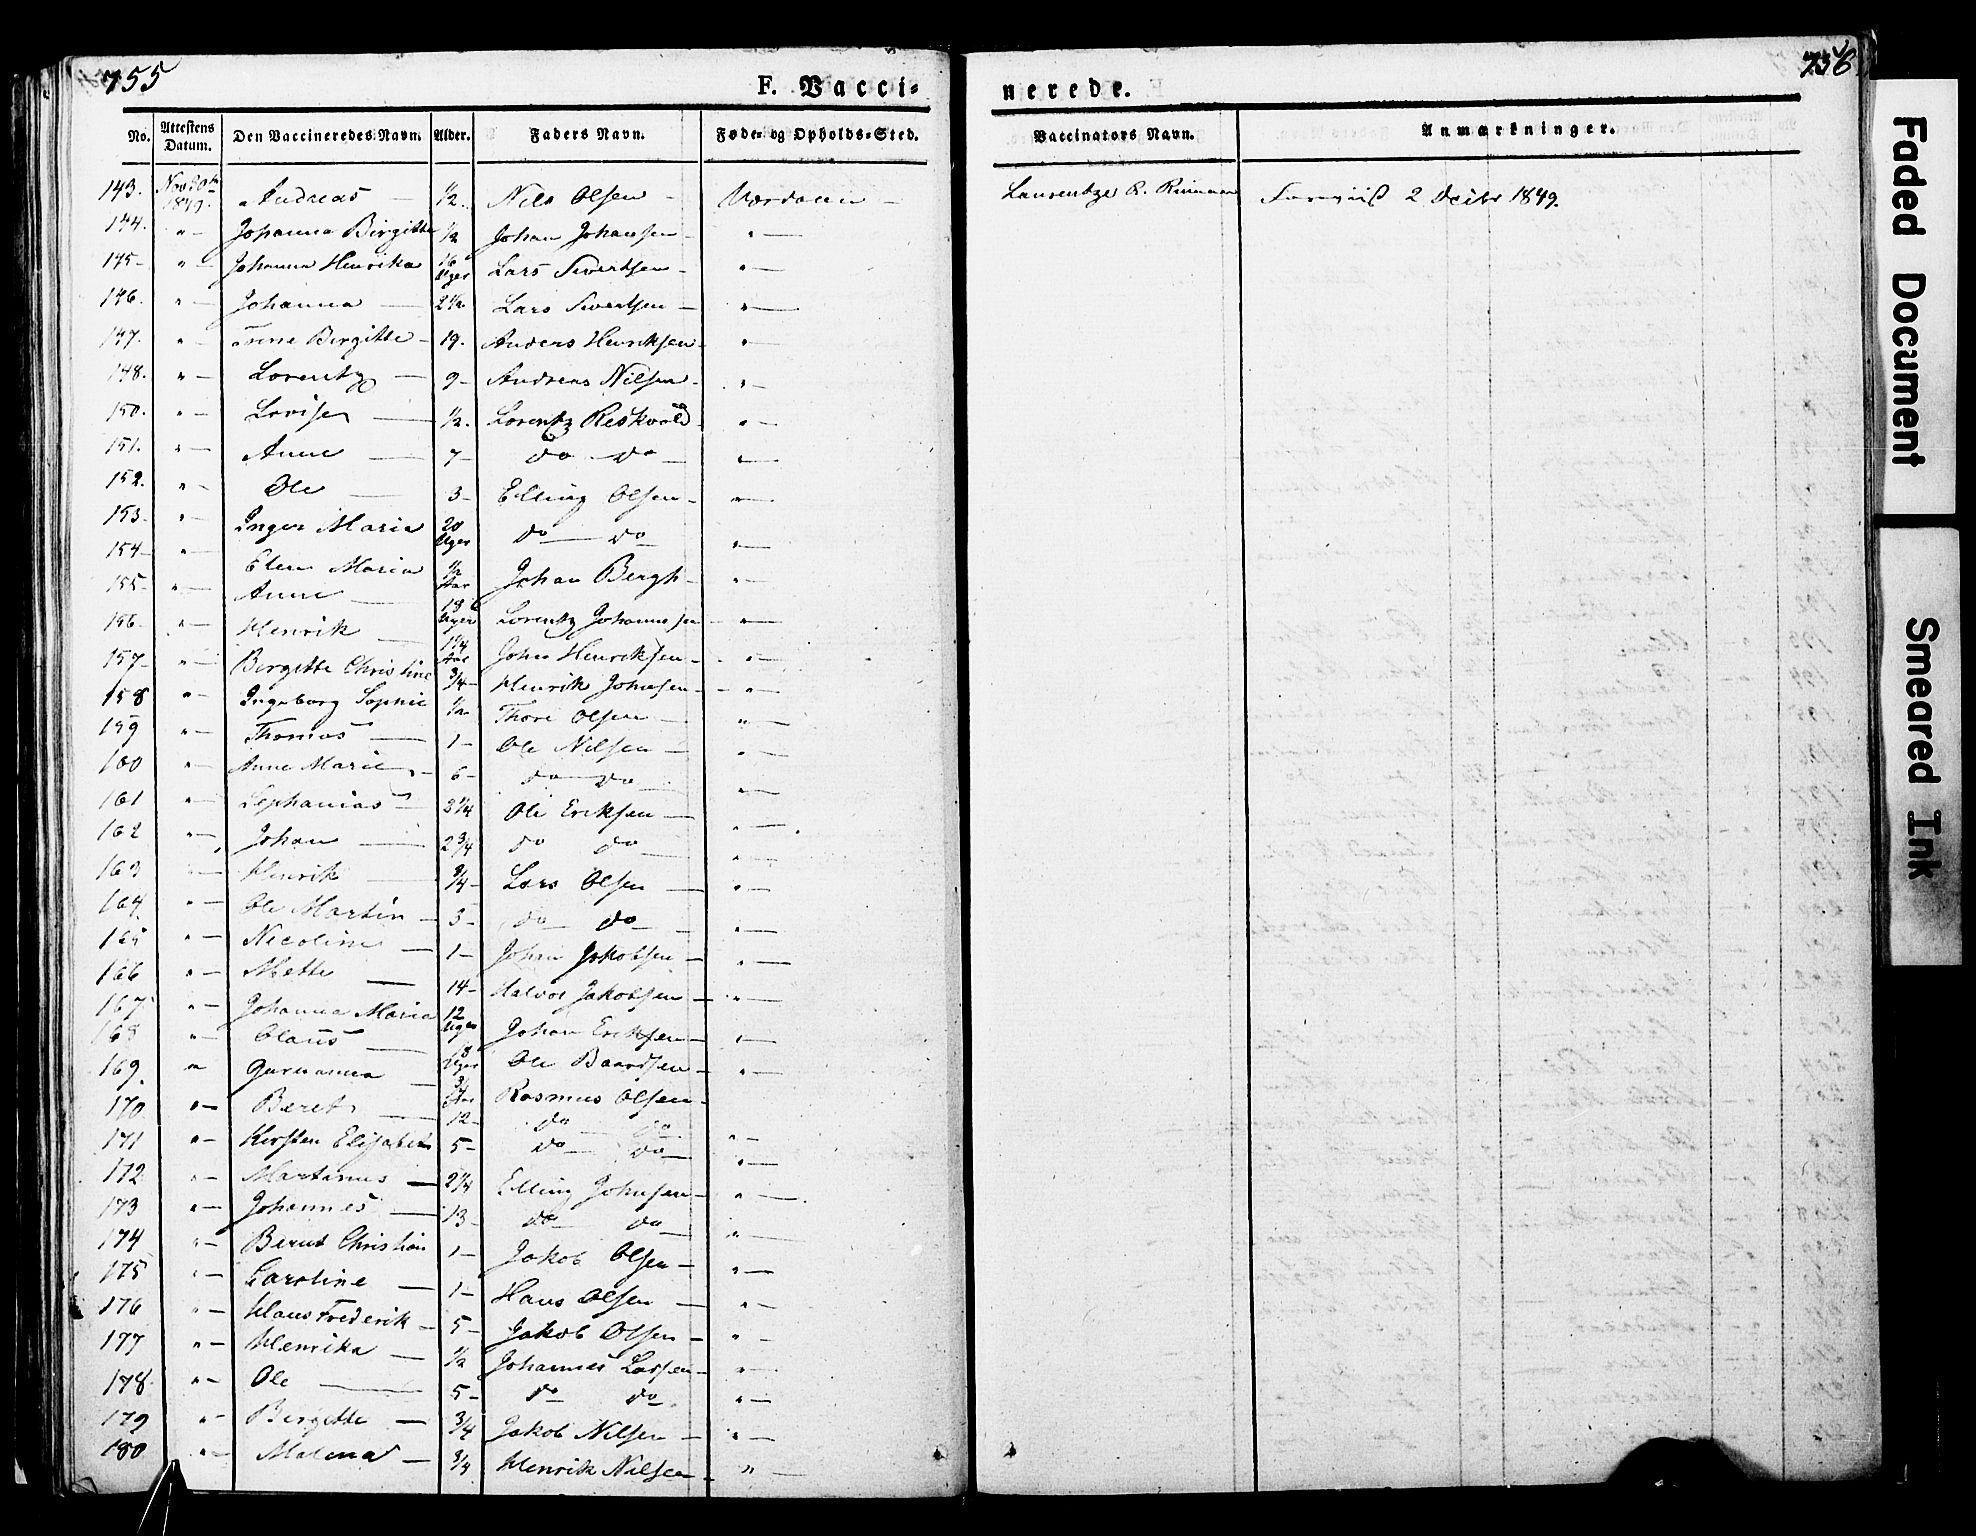 755
F. Vacci-
nerede.
756
No. Attestens Datum. Den Vaccineredes Navn. Alder. Faders Navn. Føde- og Opholds-Sted. Vaccinators Navn. Anmærkninger.
143. Nov 30te 1849. Andreas — 1/2. Nils Olsen — Værdalen — 2 Decbr 1849.
144. " — Johanna Birgitte 1/2 Johan Johansen — " —
145 — " — Johanna Henrika 16 Uger Lars Sivertsen — " —
146. " — Johanna — 2 1/2 Lars Sivertsen — " —
147. " — Birgitte — 19. Anders Henriksen — " —
148. " — Lorentz — 9 — Andreas Nilsen — " —
150. " — Lovise — 1/2. Lorentz Reskvold — " —
151. " — Anne — 7 — do — do — " —
152. " — Ole — 3 — Elling Olsen — " —
153. " — Inger Maria 20 Uger do — do " —
154 — " — Elen Maria 1/2 Aar Johan Bergh — " —
155. " — Anne — 18 Uger Lorentz Johannesen — " —
156. " — Henrik — 1 1/4 Aar John Henriksen — " —
157 — " — Birgitte Christine 3/4 — Henrik Johnsen — " —
158 " — Ingeborg Sophie 1/2 — Thore Olsen — " —
159 " — Thomas — 1 — Ole Nilsen — " —
160 " — Anne Marie — 6 — do — do " —
161 " — Zephanias — 3 1/4 Ole Eriksen — " —
162 " — Johan — 2 3/4 do do — " —
163 " — Henrik — 3/4 — Lars Olsen — " —
164. " — Ole Martin — 3 — do do — " —
165 " — Nicoline — 1 — Johan Jakobsen — " —
166 " — Mette — 14 — Halvor Jakobsen — " —
167. " — Johanna Maria 12 Uger Johan Eriksen — " —
168 " — Olaus — 18 Uger Ole Baardsen — " —
169. " — — Aar Rasmus Olsen —
170 " — Beret — 12 — do — do " —
171 " — Kirsten Elisabeth 5 — do — do — " —
172. " — Martinus — 2 1/4 Elling Johnsen — " —
173 " — Johannes — 13 — do do — " —
174 " — Bernt Christian 1 — Jakob Olsen — " —
175 " — Caroline — 1 — Hans Olsen — " —
176 " — Klaus Frederik — 5 — Jakob Olsen — " —
177 " — Henrika — 1/2 Johannes Larsen — " —
178. " — Ole — 5 — do do. " —
179 " — Birgitte — 3/4 Jakob Nilsen — " —
180. " — Malena — 3/4 Henrik Nilsen — " —
Faded Document
Smeared Ink